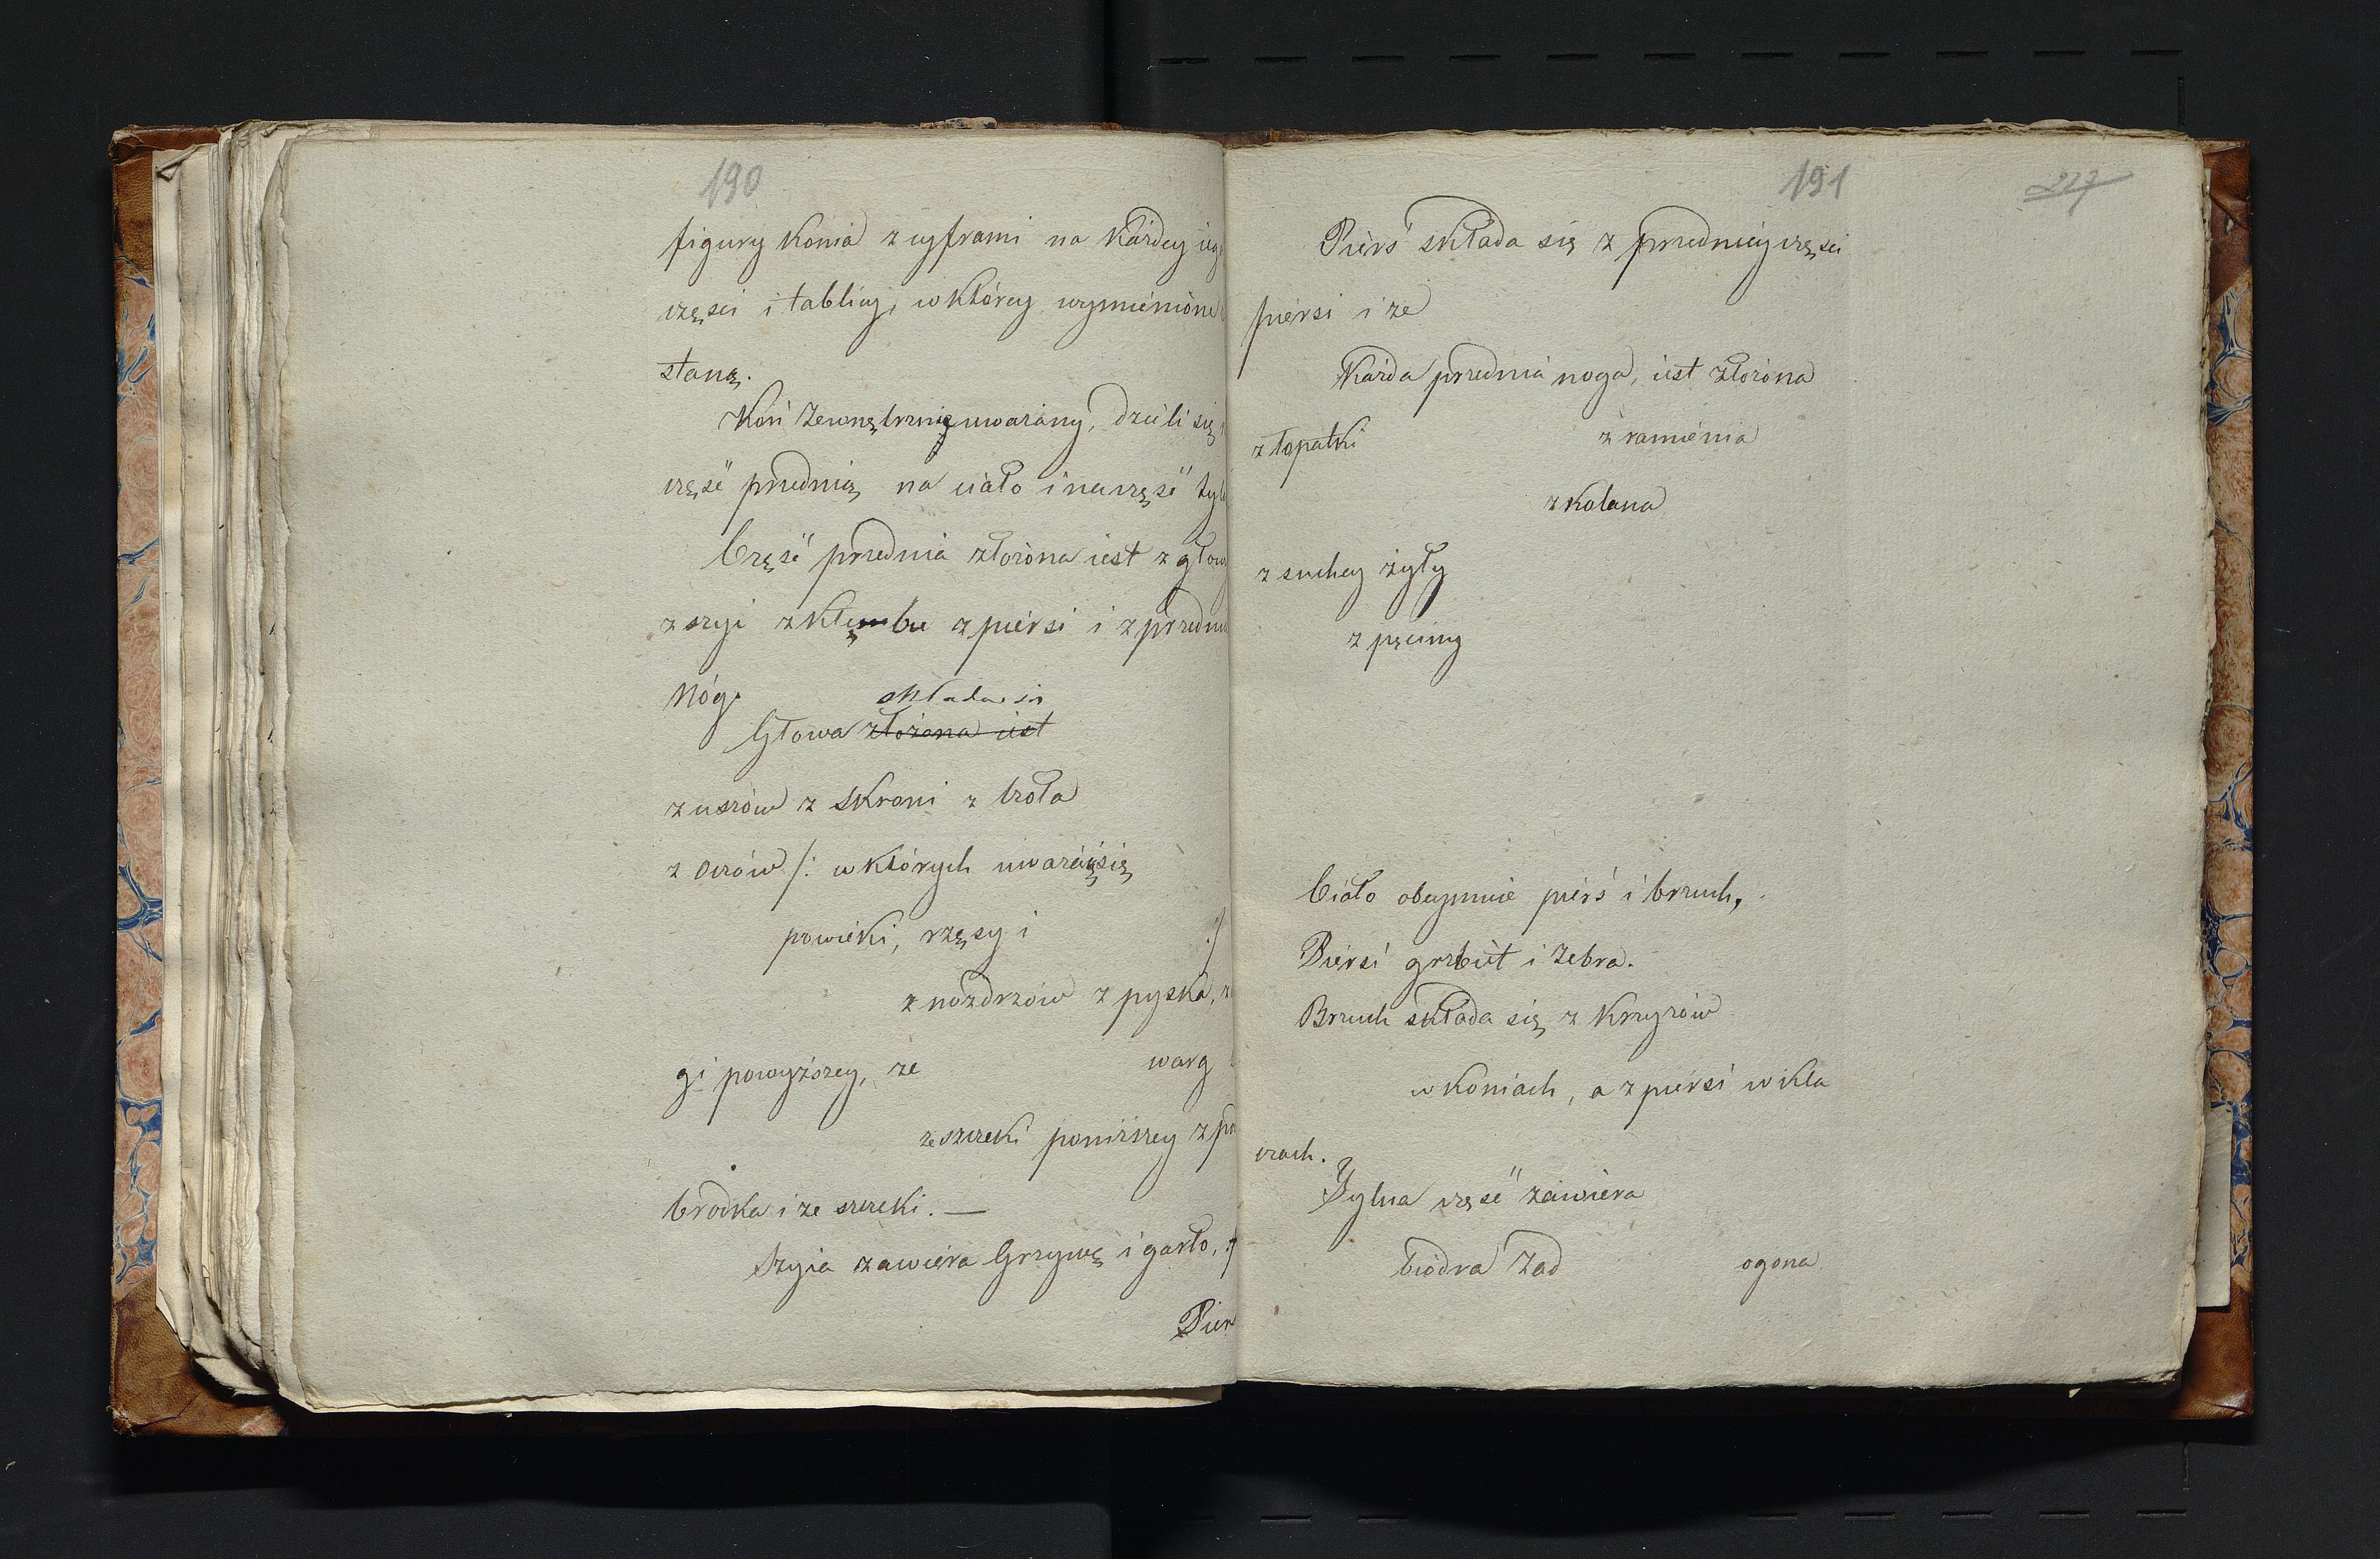 190
figury konia z cyframi na każdey ieg
części i tablicy, w którey wymiénióne
staną.
Koń zewnętrznie uważany, dzieli się
część przednią na ciało i na część tyl
Część przednia złożona iest z głowy
z szyi z kłębu z piérsi i z przedni
nóg.
składa się
Głowa złożona iest
z uszów z skroni z czoła
z oczów /: w których uważáią się
powiéki, rzęsy i :/
z nozdrzów z pyska,
gi powyższey, ze warg
ze szczeki poniższey z po
brodka i ze szczeki. —
Szyia zawiéra Grzywę i garło,
Pier
191
227
Piérś składa się z przedniey części
piérsi i ze
Każda przednia noga, iest złożona
z łopatki z ramiénia
z kolana
z suchey żyły
z pęciny
Ciało obeymuie piérś i brzuch,
Piérsi grzbiét i żebra.
Brzuch składa się z krzyżów
w koniach, a z piérsi w kla
czach.
Tylna część zawiéra
biodra Zad ogona